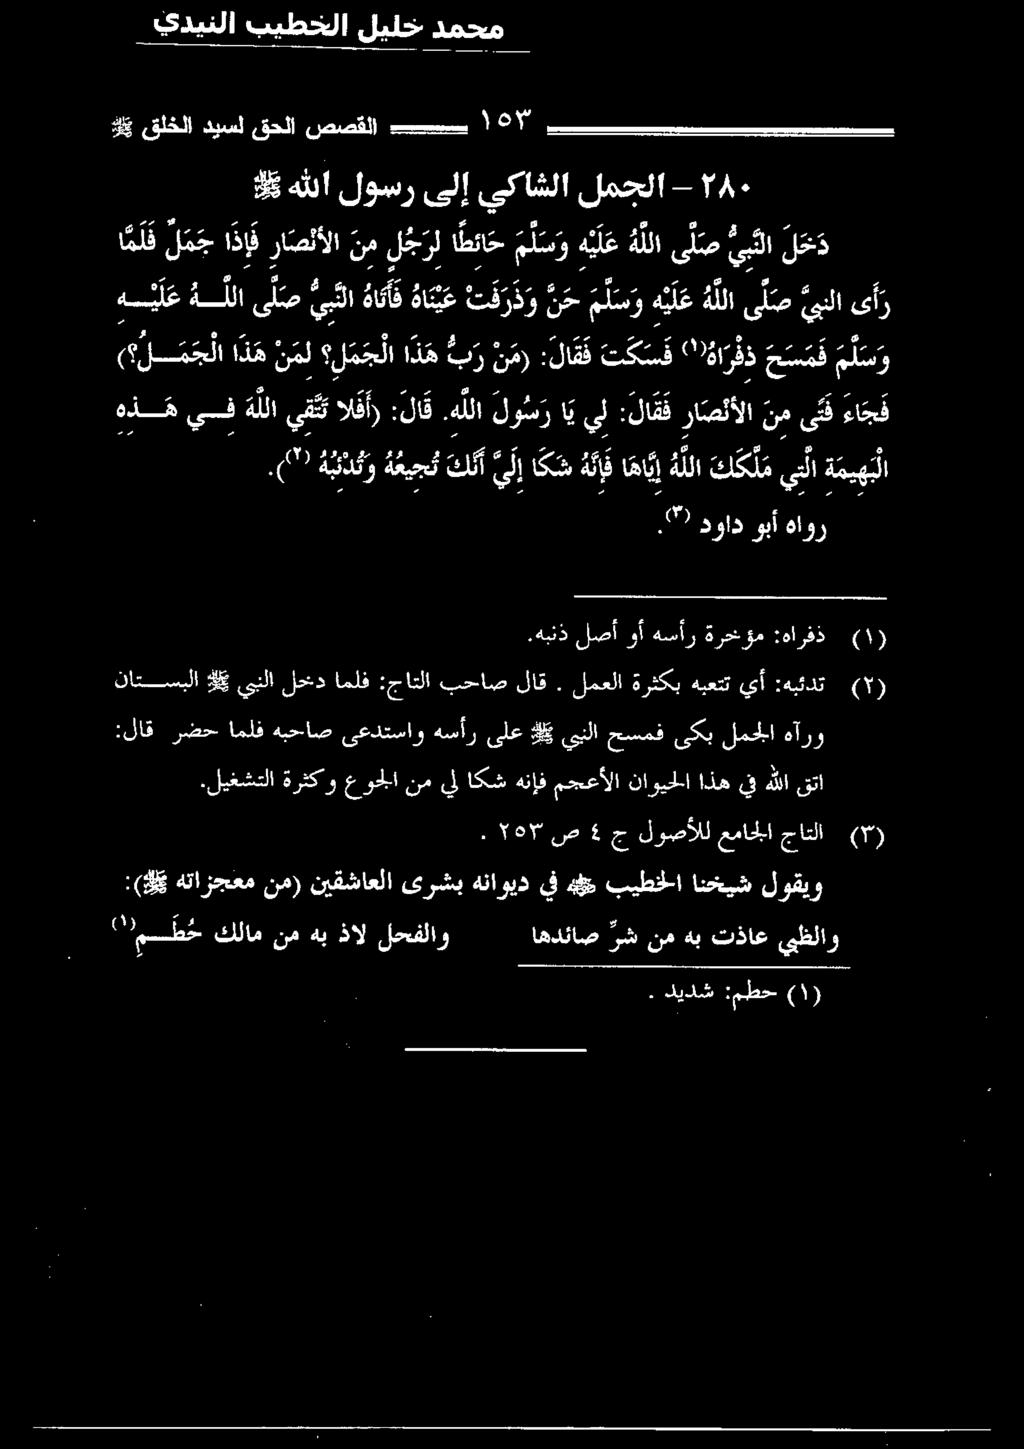 محمد خليل الخطيب النيدي
١٥٣ القصص الحق لسيد الخلق ﷺ
٢٨٠ – الجمل الشاكي إلى رسول الله ﷺ
دَخَلَ النَّبِيُّ صَلَّى اللَّهُ عَلَيْهِ وَسَلَّمَ حَائِطًا لِرَجُلٍ مِنَ الأَنْصَارِ فَإِذَا جَمَلٌ فَلَمَّا
رَأَى النبيَّ صَلَّى اللَّهُ عَلَيْهِ وَسَلَّمَ حَنَّ وَذَرَفَتْ عَيْنَاهُ فَأَتَاهُ النَّبِيُّ صَلَّى اللَّهُ عَلَيْهِ
وَسَلَّمَ فَمَسَحَ ذِفْرَاهُ(١) فَسَكَتَ فَقَالَ: (مَنْ رَبُّ هَذَا الْجَمَلِ؟ لِمَنْ هَذَا الْجَمَلُ؟)
فَجَاءَ فَتًى مِنَ الأَنْصَارِ فَقَالَ: لِي يَا رَسُولَ اللَّهِ. قَالَ: (أَفَلاَ تَتَّقِي اللَّهَ فِي هَذِهِ
الْبَهِيمَةِ الَّتِي مَلَّكَكَ اللَّهُ إِيَّاهَا فَإِنَّهُ شَكَا إِلَيَّ أَنَّكَ تُجِيعُهُ وَتُدْئِبُهُ (٢)).
رواه أبو داود (٣).
(١) ذفراه: مؤخرة رأسه أو أصل ذنبه.
(٢) تدئبه: أي تتعبه بكثرة العمل . قال صاحب التاج: فلما دخل النبي ﷺ البستان
ورآه الجمل بكى فمسح النبي ﷺ على رأسه واستدعى صاحبه فلما حضر قال:
اتق الله في هذا الحيوان الأعجم فإنه شكا لي من الجوع وكثرة التشغيل.
(٣) التاج الجامع للأصول ج ٤ ص ٢٥٣ .
ويقول شيخنا الخطيب في ديوانه بشرى العاشقين (من معجزاته ﷺ):
والظبي عاذت به من شرِّ صائدها والفحل لاذ به من مالك حُطَمِ(١)
(١) حطم: شديد .